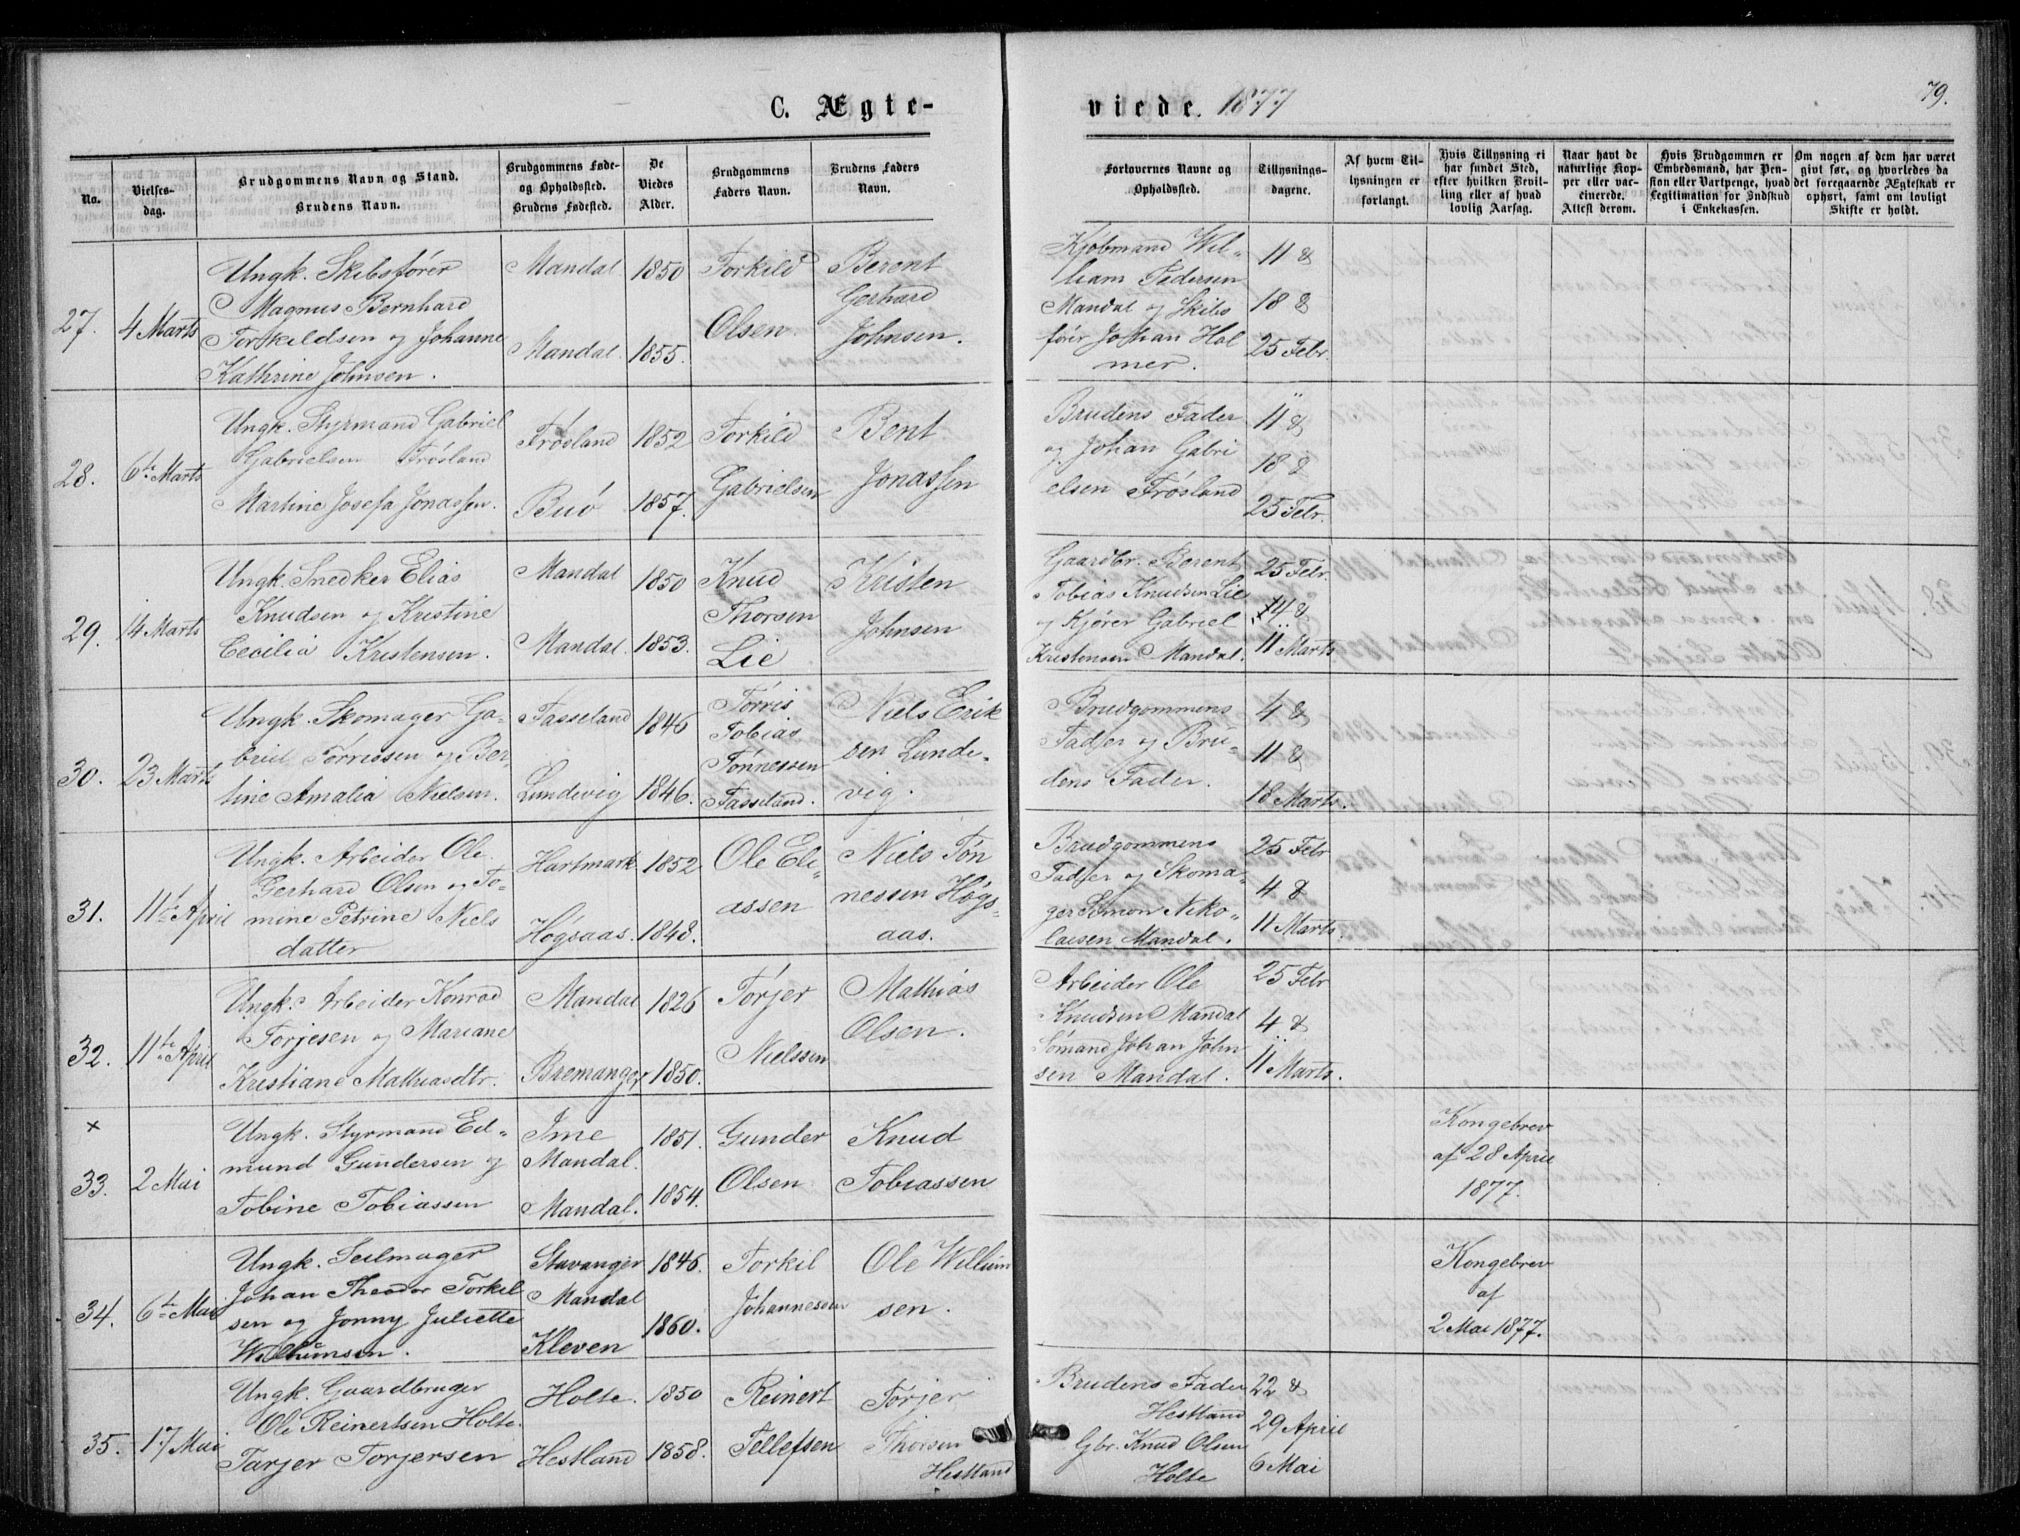 C. Ægte-
viede. 1877
79.
No.
Vielses-
dag.
Brudgommens Navn og Stand.
Brudens Navn.
Brudgommens Føde-
og Opholdssted.
Brudens Fødested.
De
Viedes
Alder.
Brudgommens
Faders Navn.
Brudens Faders
Navn.
Forlovernes Navne og
Opholdssted.
Tillysnings-
dagene.
Af hvem Til-
lysningen er
forlangt.
Hvis Tillysning ei
har fundet Sted,
efter hvilken Bevil-
ling eller af hvad
lovlig Aarsag.
Naar havt de
naturlige Kop-
per eller vac-
cinerede.
Attest derom.
Hvis Brudgommen er
Embedsmand, har Pen-
sion eller Vartpenge, hvad
Legitimation for Indskud
i Enkekassen.
Om nogen af dem har været
givt før, og hvorledes da
det foregaaende Ægteskab er
ophørt, samt om lovligt
Skifte er holdt.
27.
4 Marts
Ungk. Skibsfører
Magnus Bernhard
Torkildsen og Johanne
Kathrine Johnsen.
Mandal
Mandal.
1850
1855.
Torkild
Olsen.
Berent
Gerhard
Johnsen.
Kjøbmand Wil-
liam Pedersen
Mandal og Skibs
fører Johan Hol
mer.
11 &
18 &
25 Febr.
28.
6te Marts
Ungk. Styrmand Gabriel
Gabrielsen Frøsland
Martine Josefa Jonassen.
Frøsland
Buø
1852
1857.
Torkild
Gabrielsen
Bent
Jonassen
Brudens Fader
og Johan Gabri
elsen Frøsland
11 &
18 &
25 Febr.
29.
14 Marts
Ungk. Snedker Elias
Knudsen og Kristine
Cecilia Kristensen.
Mandal
Mandal.
1850
1853.
Knud
Thorsen
Lie
Kristen
Johnsen
Gaardbr. Berent
Tobias Knudsen Lie
og Kjører Gabriel
Kristensen Mandal.
25 Febr.
4 &
11 Marts
30.
23 Marts
Ungk. Skomager Ga-
briel Tørrissen og Ber-
tine Amalia Nielsen.
Tasseland
Lundevig
1846
1846.
Tørris
Tobias
Tønnessen
Tasseland.
Niels Erik
sen Lunde-
vig.
Brudgommens
Fader og Bru-
dens Fader.
4 &
11 &
18 Marts.
31.
11te April
Ungk. Arbeider Ole
Gerhard Olsen og To-
mine Petrine Niels
datter
Hartmark
Høgsaas.
1852.
1848.
Ole Eli-
assen
Niels Tøn
nessen Høgs-
aas.
Brudgommens
Fader og Skoma-
ger Simon Niko-
laisen Mandal.
25 Febr
4 &
11 Marts.
32.
11te April
Ungk. Arbeider Konrad
Torjesen og Mariane
Kristiane Mathiasdtr.
Mandal
Bremanger
1826
1850.
Torjer
Nielssen
Mathias
Olsen.
Arbeider Ole
Knudsen Mandal
Sømand Johan John
sen Mandal.
25 Febr
4 &
11 Marts.
×
33.
2 Mai
Ungk. Styrmand Ed-
mund Gundersen og
Tobine Tobiassen
Ime
Mandal.
Mandal.
1851.
1854.
Gunder
Olsen
Knud
Tobiassen
Kongebrev
af 28 April
1877.
34.
6te Mai
Ungk. Seilmager
Johan Theodor Torkil
sen og Jonny Juliette
Willumsen.
Stavanger
Mandal
Kleven
1846.
1860.
Torkil
Johannessen
Ole Willum
sen.
Kongebrev
af
2 Mai 1877.
35.
17 Mai
Ungk. Gaardbruger
Ole Reinertsen Holte.
Tarjer Torjersen
Holte.
Hestland
1850
1858.
Reinert
Tellefsen
Torjer
Thorsen
Hestland
Brudens Fader
Hestland
Gbr. Knud Olsen
Holte
22 &
29 April
6 Mai